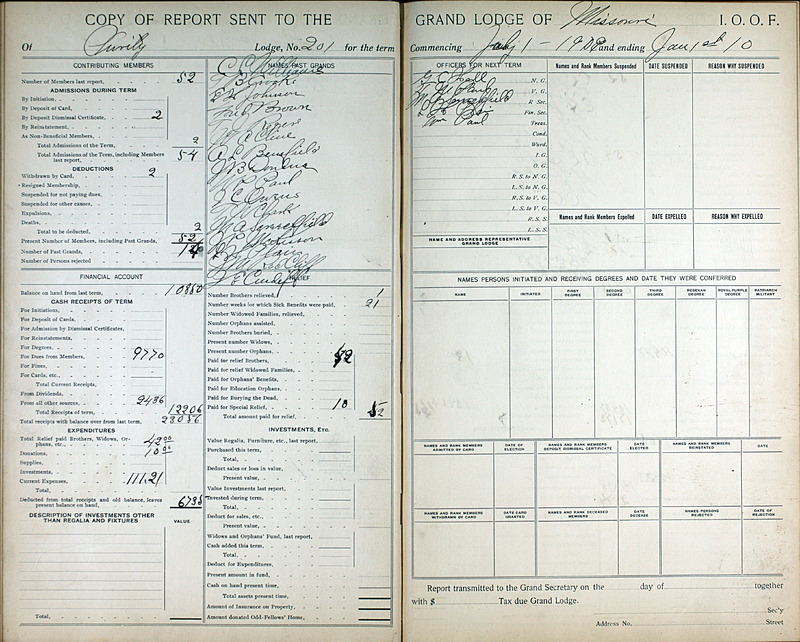 COPY OF REPORT SENT TO THE
Of Purity Lodge, No. 201 for the term
CONTRIBUTING MEMBERS
Number of Members last report, 52
ADMISSIONS DURING TERM
By Initiation,
By Deposit of Card,
By Deposit Dismissal Certificate, 2
By Reinstatement,
As Non-Beneficial Members,
Total Admissions of the Term, 2
Total Admissions of the Term, including Members last report, 54
DEDUCTIONS
Withdrawn by Card, 2
Resigned Membership,
Suspended for not paying dues,
Suspended for other causes,
Expulsions,
Deaths,
Total to be deducted, 2
Present Number of Members, including Past Grands, 52
Number of Past Grands,
Number of Persons rejected
FINANCIAL ACCOUNT
Balance on hand from last term, 10850
CASH RECEIPTS OF TERM
For Initiations,
For Deposit of Cards,
For Admission by Dismissal Certificates,
For Reinstatements,
For Degrees,
For Dues from Members, 9770
For Fines,
For Cards, etc.,
Total Current Receipts,
From Dividends,
From all other sources, 2436
Total Receipts of term, 12206
Total receipts with balance over from last term, 23056
EXPENDITURES
Total Relief paid Brothers, Widows, Orphans, etc., 42 00
Donations, 10 00
Supplies,
Investments,
Current Expenses, 111.21
Total,
Deducted from total receipts and old balance, leaves present balance on hand, 6735
DESCRIPTION OF INVESTMENTS OTHER THAN REGALIA AND FIXTURES
VALUE
Total,
NAMES PAST GRANDS
Johnson
Brown
Cline
Paul
J C Owens
Number Brothers relieved, 1
Number weeks for which Sick Benefits were paid, 21
Number Widowed Families, relieved,
Number Orphans assisted,
Number Brothers buried,
Present number Widows,
Present number Orphans,
Paid for relief Brothers,
Paid for relief Widowed Families,
Paid for Orphans' Benefits,
Paid for Education Orphans,
Paid for Burying the Dead,
Paid for Special Relief, 10
Total amount paid for relief, 52
INVESTMENTS, Etc.
Value Regalia, Furniture, etc., last report,
Purchased this term,
Total,
Deduct sales or loss in value,
Present value,
Value Investments last report,
Invested during term,
Total,
Deduct for sales, etc.,
Present value,
Widows and Orphans' Fund, last report,
Cash added this term,
Total,
Deduct for Expenditures,
Present amount in fund,
Cash on hand present time,
Total assets present time,
Amount of Insurance on Property,
Amount donated Odd-Fellows' Home,
GRAND LODGE OF Missouri I. O. O. F.
Commencing July 1 - and ending Jan 1st 10
OFFICERS FOR NEXT TERM
N. G.
V. G.
R. Sec.
Fin. Sec.
Wm Paul Treas.
Cond.
Ward.
I. G.
O. G.
R. S. to N. G.
L. S. to N. G.
R. S. to V. G.
L. S. to V. G.
R. S. S.
L. S. S.
NAME AND ADDRESS REPRESENTATIVE GRAND LODGE
Names and Rank Members Suspended
DATE SUSPENDED
REASON WHY SUSPENDED
Names and Rank Members Expelled
DATE EXPELLED
REASON WHY EXPELLED
NAMES PERSONS INITIATED AND RECEIVING DEGREES AND DATE THEY WERE CONFERRED
NAME
INITIATED
FIRST DEGREE
SECOND DEGREE
THIRD DEGREE
REBEKAH DEGREE
ROYAL PURPLE DEGREE
PATRIARCH MILITANT
NAMES AND RANK MEMBERS ADMITTED BY CARD
DATE OF ELECTION
NAMES AND RANK MEMBERS DEPOSIT DISMISSAL CERTIFICATE
DATE ELECTED
NAMES AND RANK MEMBERS REINSTATED
DATE
NAMES AND RANK MEMBERS WITHDRAWN BY CARD
DATE CARD GRANTED
NAMES AND RANK DECEASED MEMBERS
DATE DECEASE
NAMES PERSONS REJECTED
DATE OF REJECTION
Report transmitted to the Grand Secretary on the day of together
with $ Tax due Grand Lodge.
Sec'y
Address No. Street